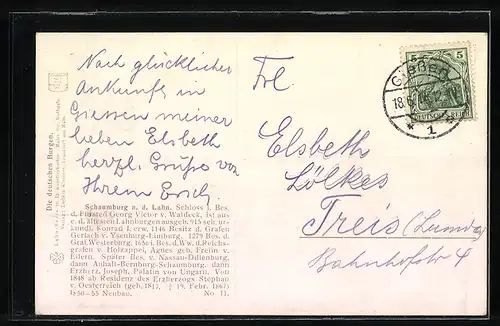 Nach glücklicher
Ankunft in
Giessen meiner
lieben Elsbeth
herzl. Grüße von
Ihrem
Frl
Elsbeth
Lölkes
Treis
Bahnhofstr 4
5 5
GIESSEN
18.6.
* 1
DEUTSCHES REICH
Die deutschen Burgen.
Schaumburg a. d. Lahn. Schloss i. Bes.
d. Fürsten Georg Victor v. Waldeck, ist aus
e. d. ältesten Lahnburgen ausgeb. 915 sehr ur-
kundl. Konrad I. erw. 1146 Besitz d. Grafen
Gerlach v. Ysenberg-Limburg. 1279 Bes. d.
Graf. Westerburg. 1656 i. Bes. d. Ww. d. Reichs-
grafen v. Holzappel, Agnes geb. Freiin v.
Effern. Später Bes. v. Nassau-Dillenburg,
dann Anhalt-Bernburg-Schaumburg, dann
Erzherz. Joseph, Palatin von Ungarn. Von
1848 ab Residenz des Erzherzogs Stephan
v. Oesterreich (geb. 1817, † 19. Febr. 1867)
1850–55 Neubau. No 11.